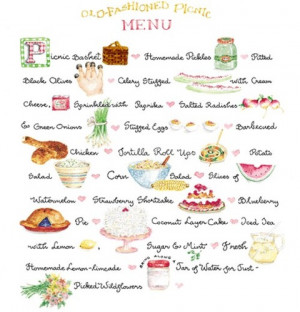 OLD-FASHIONED PICNIC
MENU
Picnic Basket Homemade Pickles Pitted
Black Olives Celery Stuffed with Cream
Cheese, Sprinkled with Paprika Salted Radishes
& Green Onions Stuffed Eggs Barbecued
Chicken Tortilla Roll Ups Potato
Salad Corn Salad Slices of
Watermelon Strawberry Shortcake Blueberry
Pie Coconut Layer Cake Iced Tea
with Lemon, Sugar & Mint Fresh
Homemade Lemon-limeade Jar of Water for Just-
Picked Wildflowers